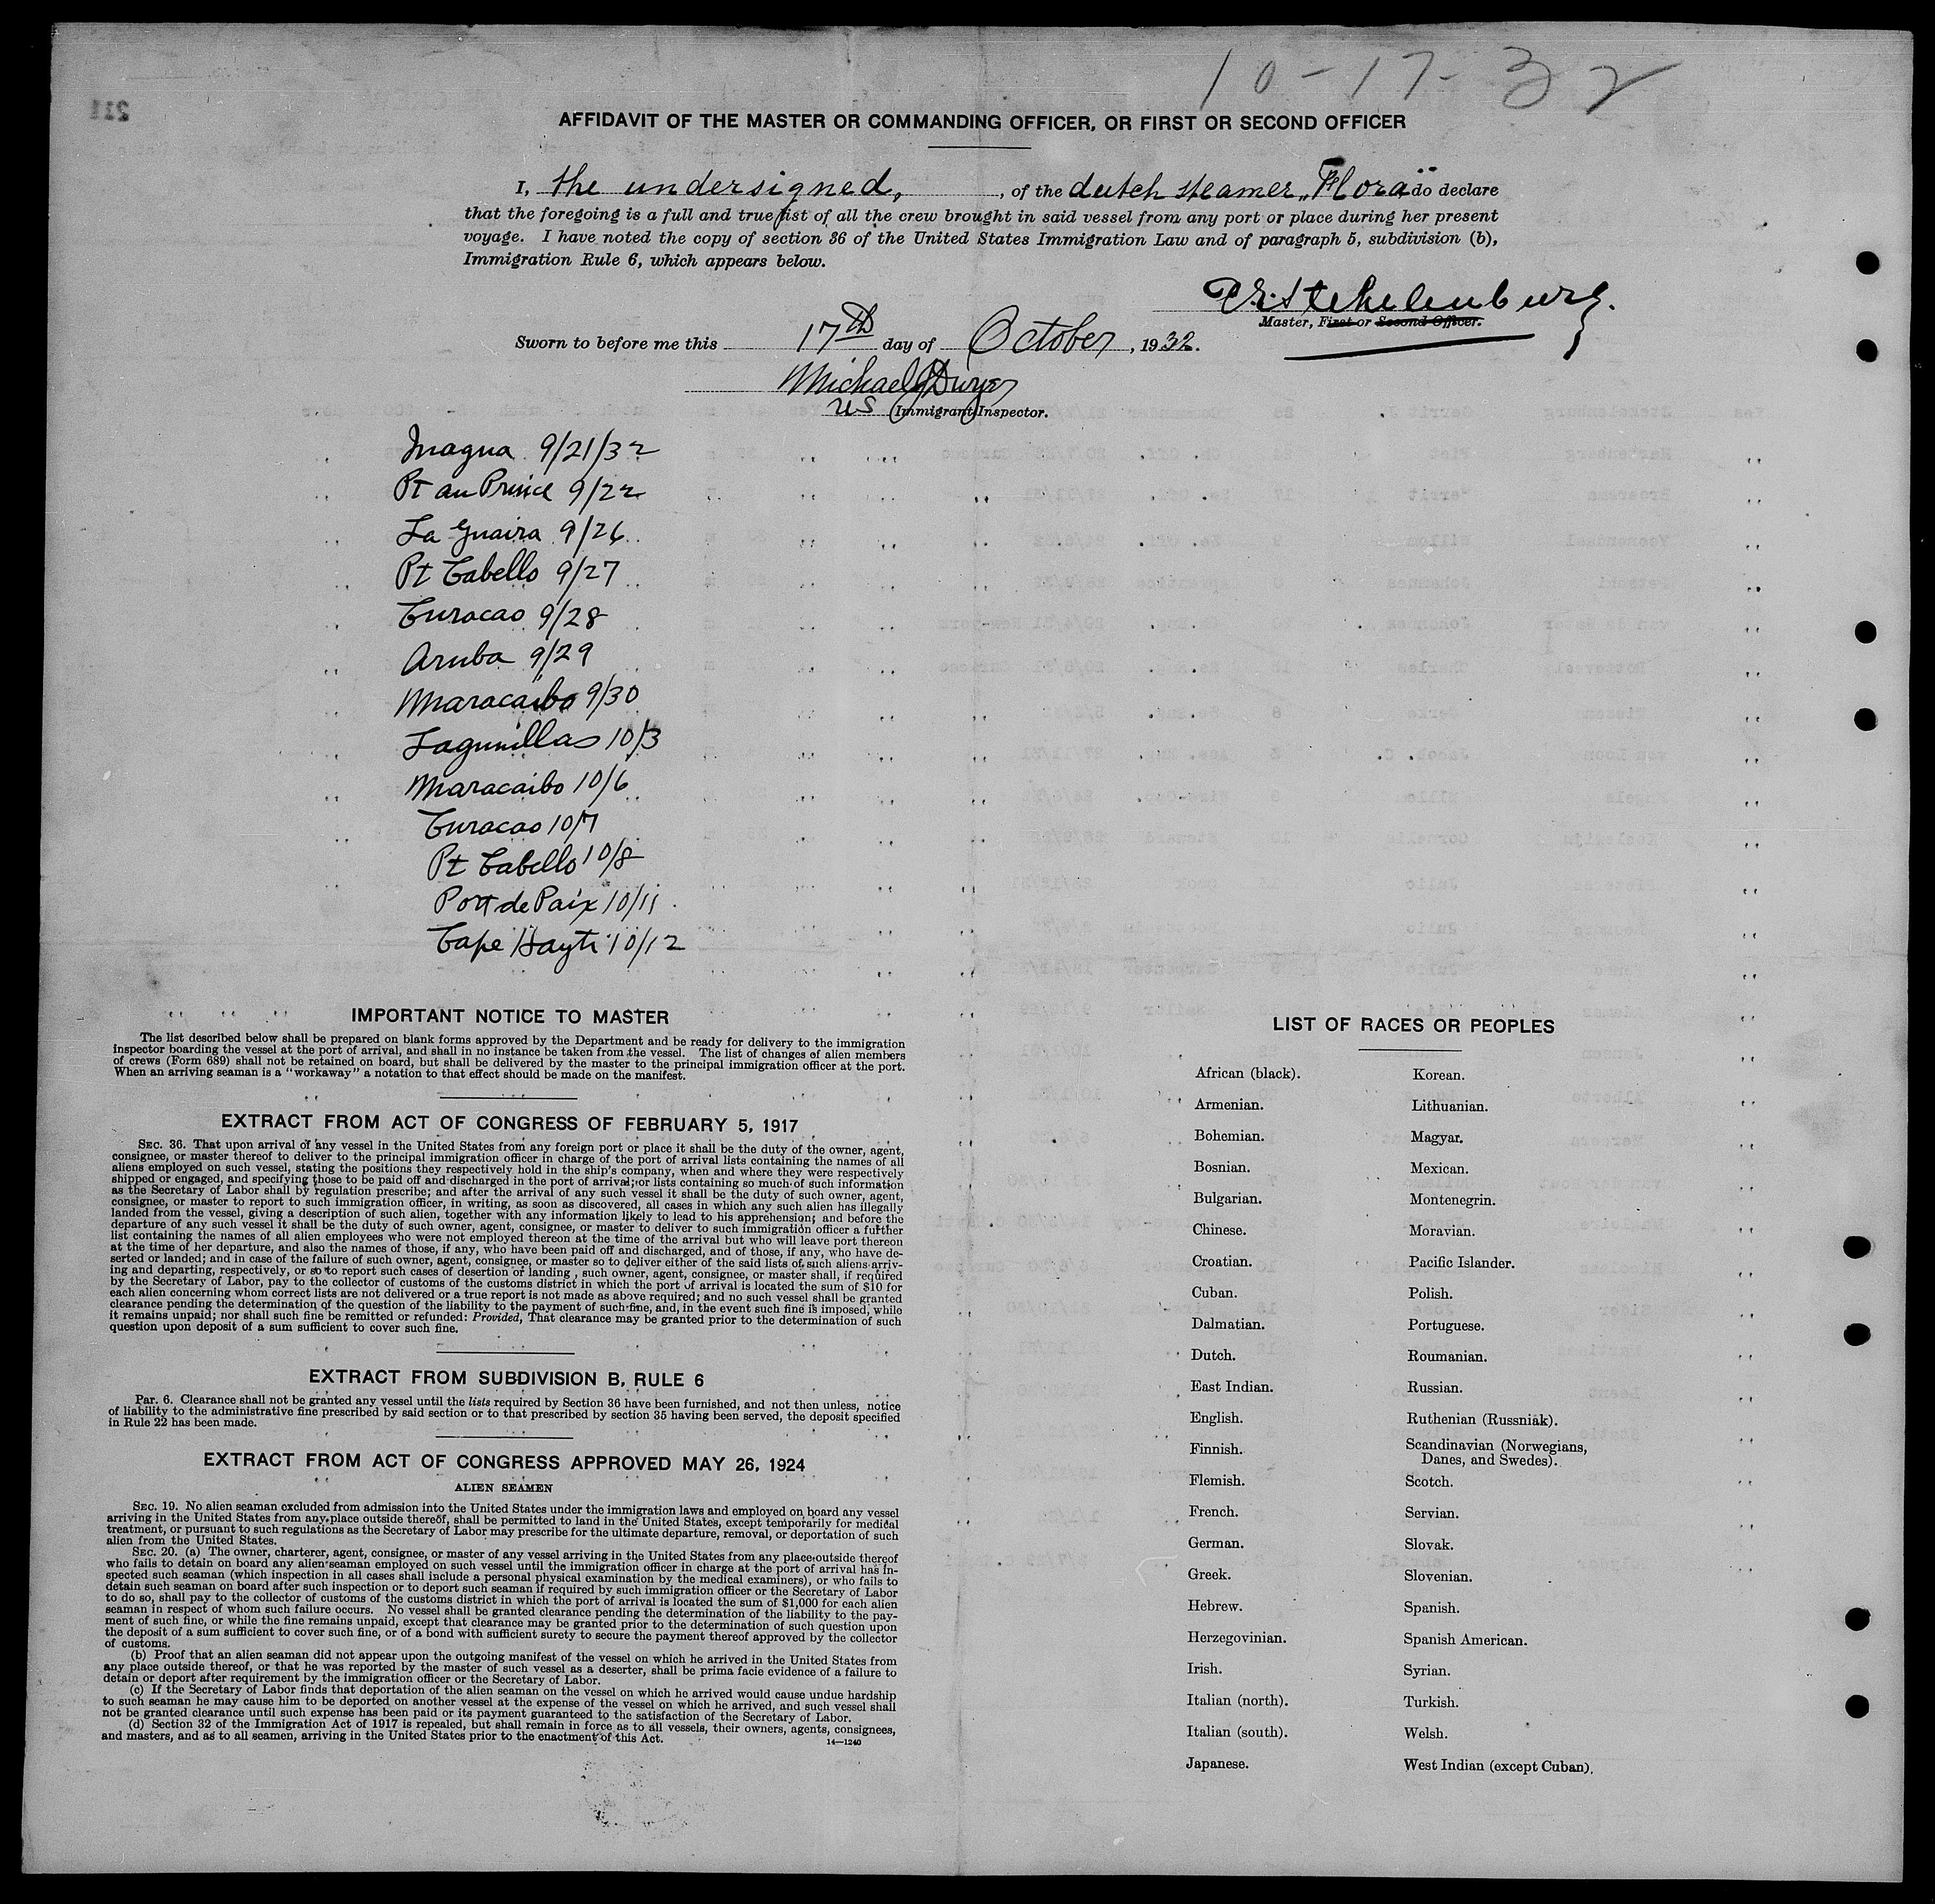 10-17-32
AFFIDAVIT OF THE MASTER OR COMMANDING OFFICER, OR FIRST OR SECOND OFFICER
I, the undersigned, , of the dutch steamer „Flora" do declare
that the foregoing is a full and true list of all the crew brought in said vessel from any port or place during her present
voyage. I have noted the copy of section 36 of the United States Immigration Law and of paragraph 5, subdivision (b),
Immigration Rule 6, which appears below.
Stekelenburg.
Master, First or Second Officer.
Sworn to before me this 17th day of October, 1932.
Michael J Dwyer
US Immigrant Inspector.
Inagua 9/21/32
Pt au Prince 9/22
La Guaira 9/26
Pt Cabello 9/27
Curacao 9/28
Aruba 9/29
Maracaibo 9/30
Lagunillas 10/3
Maracaibo 10/6
Curacao 10/7
Pt Cabello 10/8
Port de Paix 10/11
Cape Hayti 10/12
IMPORTANT NOTICE TO MASTER
The list described below shall be prepared on blank forms approved by the Department and be ready for delivery to the immigration
inspector boarding the vessel at the port of arrival, and shall in no instance be taken from the vessel. The list of changes of alien members
of crews (Form 689) shall not be retained on board, but shall be delivered by the master to the principal immigration officer at the port.
When an arriving seaman is a "workaway" a notation to that effect should be made on the manifest.
EXTRACT FROM ACT OF CONGRESS OF FEBRUARY 5, 1917
SEC. 36. That upon arrival of any vessel in the United States from any foreign port or place it shall be the duty of the owner, agent,
consignee, or master thereof to deliver to the principal immigration officer in charge of the port of arrival lists containing the names of all
aliens employed on such vessel, stating the positions they respectively hold in the ship's company, when and where they were respectively
shipped or engaged, and specifying those to be paid off and discharged in the port of arrival; or lists containing so much of such information
as the Secretary of Labor shall by regulation prescribe; and after the arrival of any such vessel it shall be the duty of such owner, agent,
consignee, or master to report to such immigration officer, in writing, as soon as discovered, all cases in which any such alien has illegally
landed from the vessel, giving a description of such alien, together with any information likely to lead to his apprehension; and before the
departure of any such vessel it shall be the duty of such owner, agent, consignee, or master to deliver to such immigration officer a further
list containing the names of all alien employees who were not employed thereon at the time of the arrival but who will leave port thereon
at the time of her departure, and also the names of those, if any, who have been paid off and discharged, and of those, if any, who have de-
serted or landed; and in case of the failure of such owner, agent, consignee, or master so to deliver either of the said lists of such aliens arriv-
ing and departing, respectively, or so to report such cases of desertion or landing , such owner, agent, consignee, or master shall, if required
by the Secretary of Labor, pay to the collector of customs of the customs district in which the port of arrival is located the sum of $10 for
each alien concerning whom correct lists are not delivered or a true report is not made as above required; and no such vessel shall be granted
clearance pending the determination of the question of the liability to the payment of such fine, and, in the event such fine is imposed, while
it remains unpaid; nor shall such fine be remitted or refunded: Provided, That clearance may be granted prior to the determination of such
question upon deposit of a sum sufficient to cover such fine.
EXTRACT FROM SUBDIVISION B, RULE 6
Par. 6. Clearance shall not be granted any vessel until the lists required by Section 36 have been furnished, and not then unless, notice
of liability to the administrative fine prescribed by said section or to that prescribed by section 35 having been served, the deposit specified
in Rule 22 has been made.
EXTRACT FROM ACT OF CONGRESS APPROVED MAY 26, 1924
ALIEN SEAMEN
SEC. 19. No alien seaman excluded from admission into the United States under the immigration laws and employed on board any vessel
arriving in the United States from any place outside thereof, shall be permitted to land in the United States, except temporarily for medical
treatment, or pursuant to such regulations as the Secretary of Labor may prescribe for the ultimate departure, removal, or deportation of such
alien from the United States.
SEC. 20. (a) The owner, charterer, agent, consignee, or master of any vessel arriving in the United States from any place outside thereof
who fails to detain on board any alien seaman employed on such vessel until the immigration officer in charge at the port of arrival has in-
spected such seaman (which inspection in all cases shall include a personal physical examination by the medical examiners), or who fails to
detain such seaman on board after such inspection or to deport such seaman if required by such immigration officer or the Secretary of Labor
to do so, shall pay to the collector of customs of the customs district in which the port of arrival is located the sum of $1,000 for each alien
seaman in respect of whom such failure occurs. No vessel shall be granted clearance pending the determination of the liability to the pay-
ment of such fine, or while the fine remains unpaid, except that clearance may be granted prior to the determination of such question upon
the deposit of a sum sufficient to cover such fine, or of a bond with sufficient surety to secure the payment thereof approved by the collector
of customs.
(b) Proof that an alien seaman did not appear upon the outgoing manifest of the vessel on which he arrived in the United States from
any place outside thereof, or that he was reported by the master of such vessel as a deserter, shall be prima facie evidence of a failure to
detain or deport after requirement by the immigration officer or the Secretary of Labor.
(c) If the Secretary of Labor finds that deportation of the alien seaman on the vessel on which he arrived would cause undue hardship
to such seaman he may cause him to be deported on another vessel at the expense of the vessel on which he arrived, and such vessel shall
not be granted clearance until such expense has been paid or its payment guaranteed to the satisfaction of the Secretary of Labor.
(d) Section 32 of the Immigration Act of 1917 is repealed, but shall remain in force as to all vessels, their owners, agents, consignees,
and masters, and as to all seamen, arriving in the United States prior to the enactment of this Act.
14—1240
LIST OF RACES OR PEOPLES
African (black). Korean.
Armenian. Lithuanian.
Bohemian. Magyar.
Bosnian. Mexican.
Bulgarian. Montenegrin.
Chinese. Moravian.
Croatian. Pacific Islander.
Cuban. Polish.
Dalmatian. Portuguese.
Dutch. Roumanian.
East Indian. Russian.
English. Ruthenian (Russniak).
Finnish. Scandinavian (Norwegians,
Danes, and Swedes).
Flemish. Scotch.
French. Servian.
German. Slovak.
Greek. Slovenian.
Hebrew. Spanish.
Herzegovinian. Spanish American.
Irish. Syrian.
Italian (north). Turkish.
Italian (south). Welsh.
Japanese. West Indian (except Cuban).